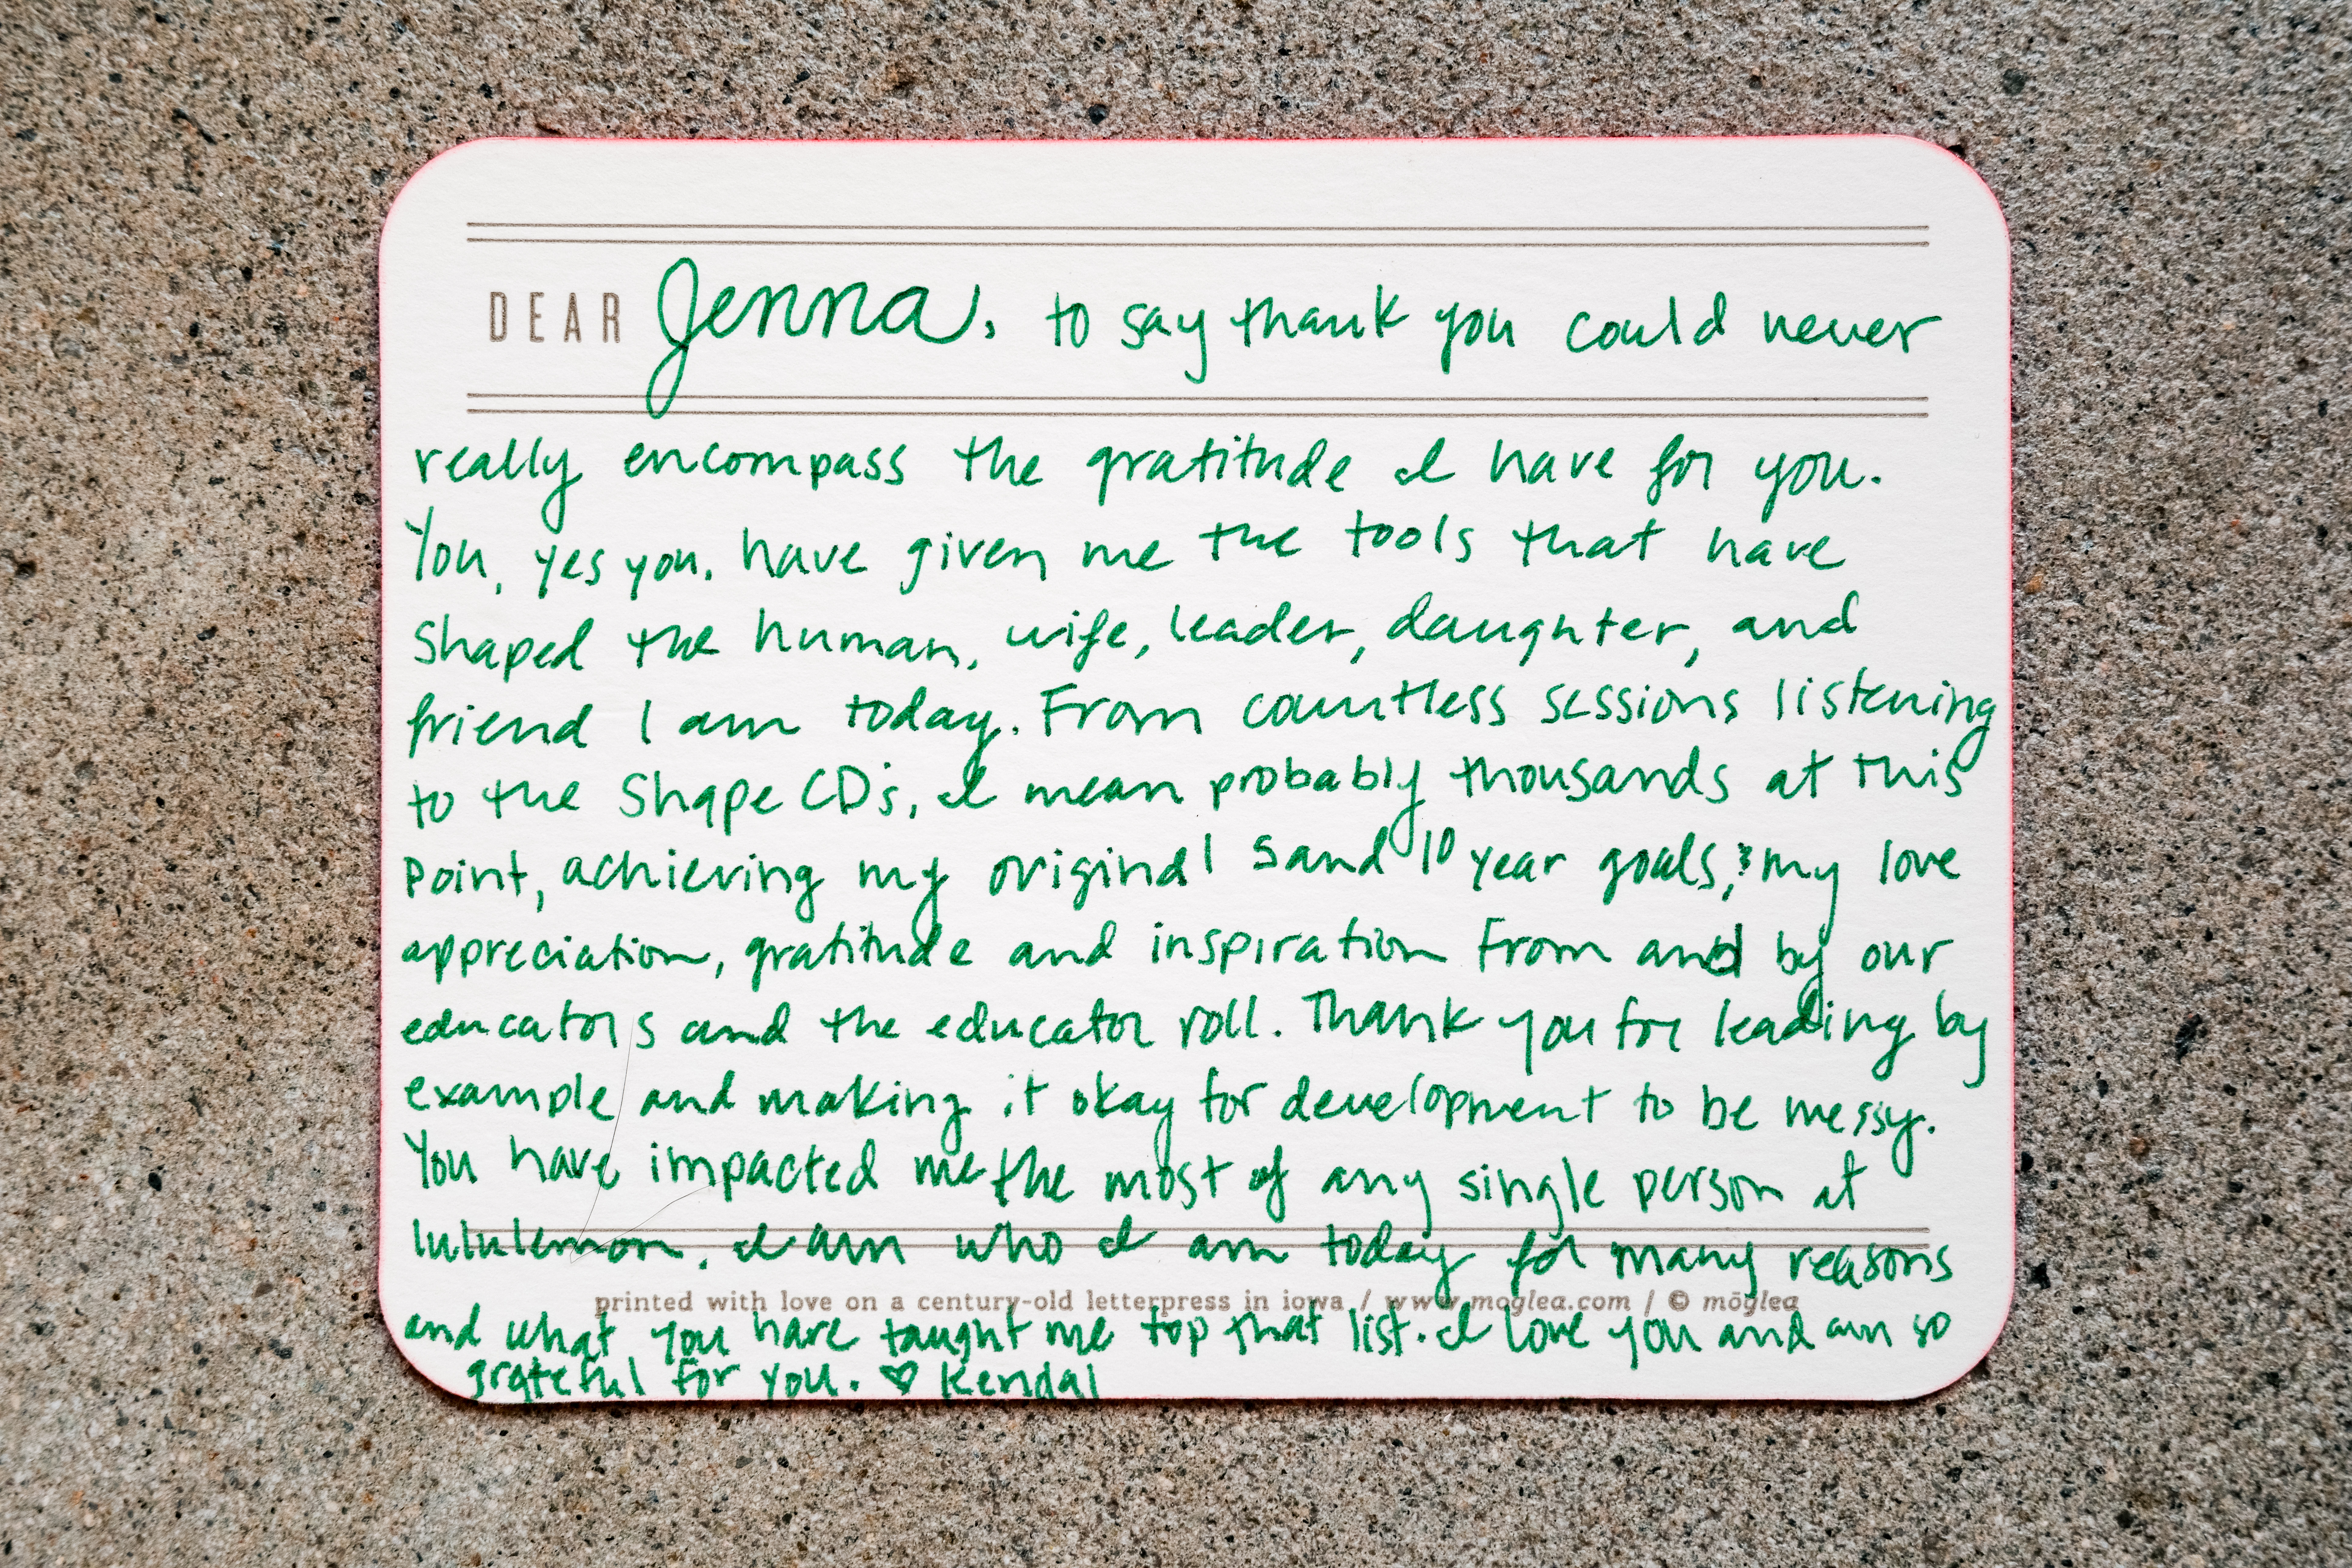 DEAR Jenna, to say thank you could never
really encompass the gratitude I have for you.
You, yes you, have given me the tools that have
shaped the human, wife, leader, daughter, and
friend I am today. From countless sessions listening
to the Shape CD's, I mean probably thousands at this
point, achieving my original 5 and 10 year goals, & my love
appreciation, gratitude and inspiration from and by our
educators and the educator roll. Thank you for leading by
example and making it okay for development to be messy.
You have impacted me the most of any single person at
lululemon. I am who I am today for many reasons
printed with love on a century-old letterpress in iowa / www.moglea.com / © mōglea
and what you have taught me top that list. I love you and am so
grateful for you. ♡ Kendal